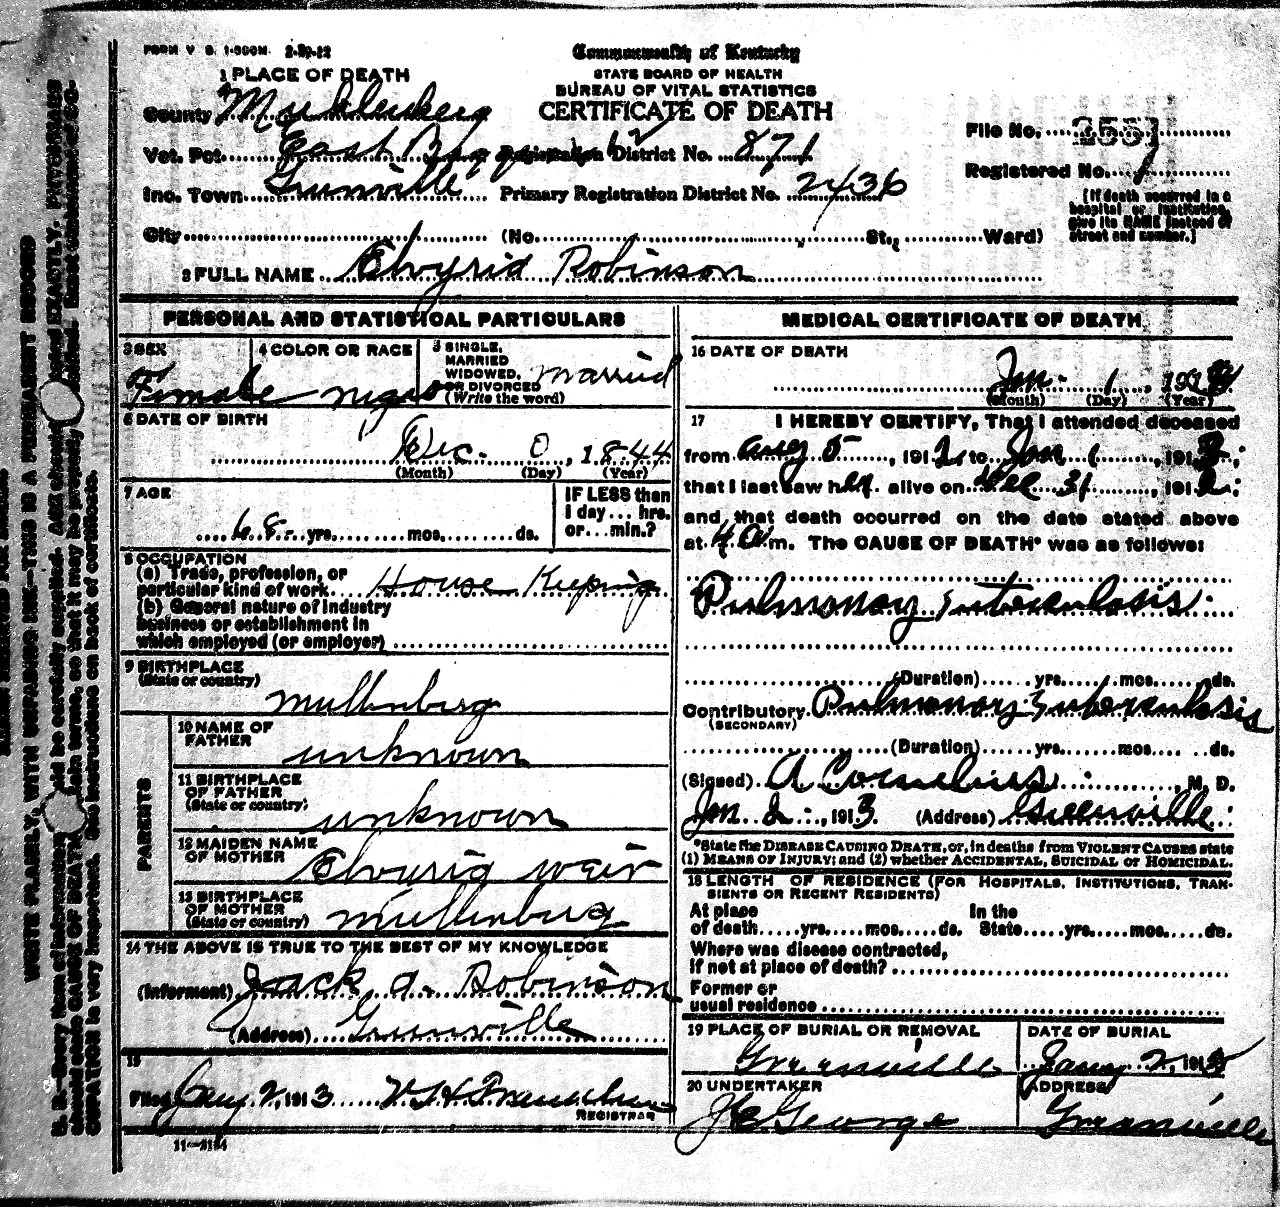 FORM V S. 1-500M 2-29-12
Commonwealth of Kentucky
STATE BOARD OF HEALTH
BUREAU OF VITAL STATISTICS
CERTIFICATE OF DEATH
1 PLACE OF DEATH
County Muhlenberg
Vot. Pct. East Registration District No. 871
Inc. Town Grunville Primary Registration District No. 2436
City (No. St., Ward)
File No. 255
Registered No. 1
[If death occurred in a
hospital or institution,
give its NAME instead of
street and number.]
2 FULL NAME Elvyrid Robinson
PERSONAL AND STATISTICAL PARTICULARS
3 SEX
Female
4 COLOR OR RACE
negro
5 SINGLE,
MARRIED
WIDOWED,
OR DIVORCED
(Write the word)
married
6 DATE OF BIRTH
Dec. 0, 1844
(Month) (Day) (Year)
7 AGE
68 yrs. mos. ds.
IF LESS than
1 day... hrs.
or... min.?
8 OCCUPATION
(a) Trade, profession, or
particular kind of work House Keeping
(b) General nature of industry
business or establishment in
which employed (or employer)
9 BIRTHPLACE
(State or country)
Mullenburg
PARENTS
10 NAME OF
FATHER
unknown
11 BIRTHPLACE
OF FATHER
(State or country)
unknown
12 MAIDEN NAME
OF MOTHER
Elvyrid weir
13 BIRTHPLACE
OF MOTHER
(State or country)
Mullenburg
14 THE ABOVE IS TRUE TO THE BEST OF MY KNOWLEDGE
(Informant) Jack a. Robinson
(Address) Grunville
15
Filed Jany 2, 1913
REGISTRAR
11-3184
MEDICAL CERTIFICATE OF DEATH
16 DATE OF DEATH
Jan. 1, 191
(Month) (Day) (Year)
17 I HEREBY CERTIFY, That I attended deceased
from Aug 5, 1912, to Jan 1, 1913;
that I last saw her alive on Dec 31, 1912;
and that death occurred on the date stated above
at 4 a m. The CAUSE OF DEATH* was as follows:
Pulmonary Tuberculosis
(Duration) yrs. mos. ds.
Contributory Pulmonary Tuberculosis
(SECONDARY)
(Duration) yrs. mos. ds.
(Signed) A Cornelius M. D.
Jan. 2, 1913 (Address) Greenville
*State the DISEASE CAUSING DEATH, or, in deaths from VIOLENT CAUSES state
(1) MEANS OF INJURY; and (2) whether ACCIDENTAL, SUICIDAL OR HOMICIDAL.
18 LENGTH OF RESIDENCE (FOR HOSPITALS, INSTITUTIONS, TRAN-
SIENTS OR RECENT RESIDENTS)
At place
of death yrs. mos. ds.
In the
State yrs. mos. ds.
Where was disease contracted,
If not at place of death?
Former or
usual residence
19 PLACE OF BURIAL OR REMOVAL
Greenville
DATE OF BURIAL
Jany 2, 1913
20 UNDERTAKER
JC George
ADDRESS
Greenville
WRITE PLAINLY, WITH UNFADING INK—THIS IS A PERMANENT RECORD
N. B.—Every item of information should be carefully supplied. AGE should be stated EXACTLY. PHYSICIANS
should state CAUSE OF DEATH in plain terms, so that it may be properly classified. Exact statement of OC-
CUPATION is very important. See instructions on back of certificate.